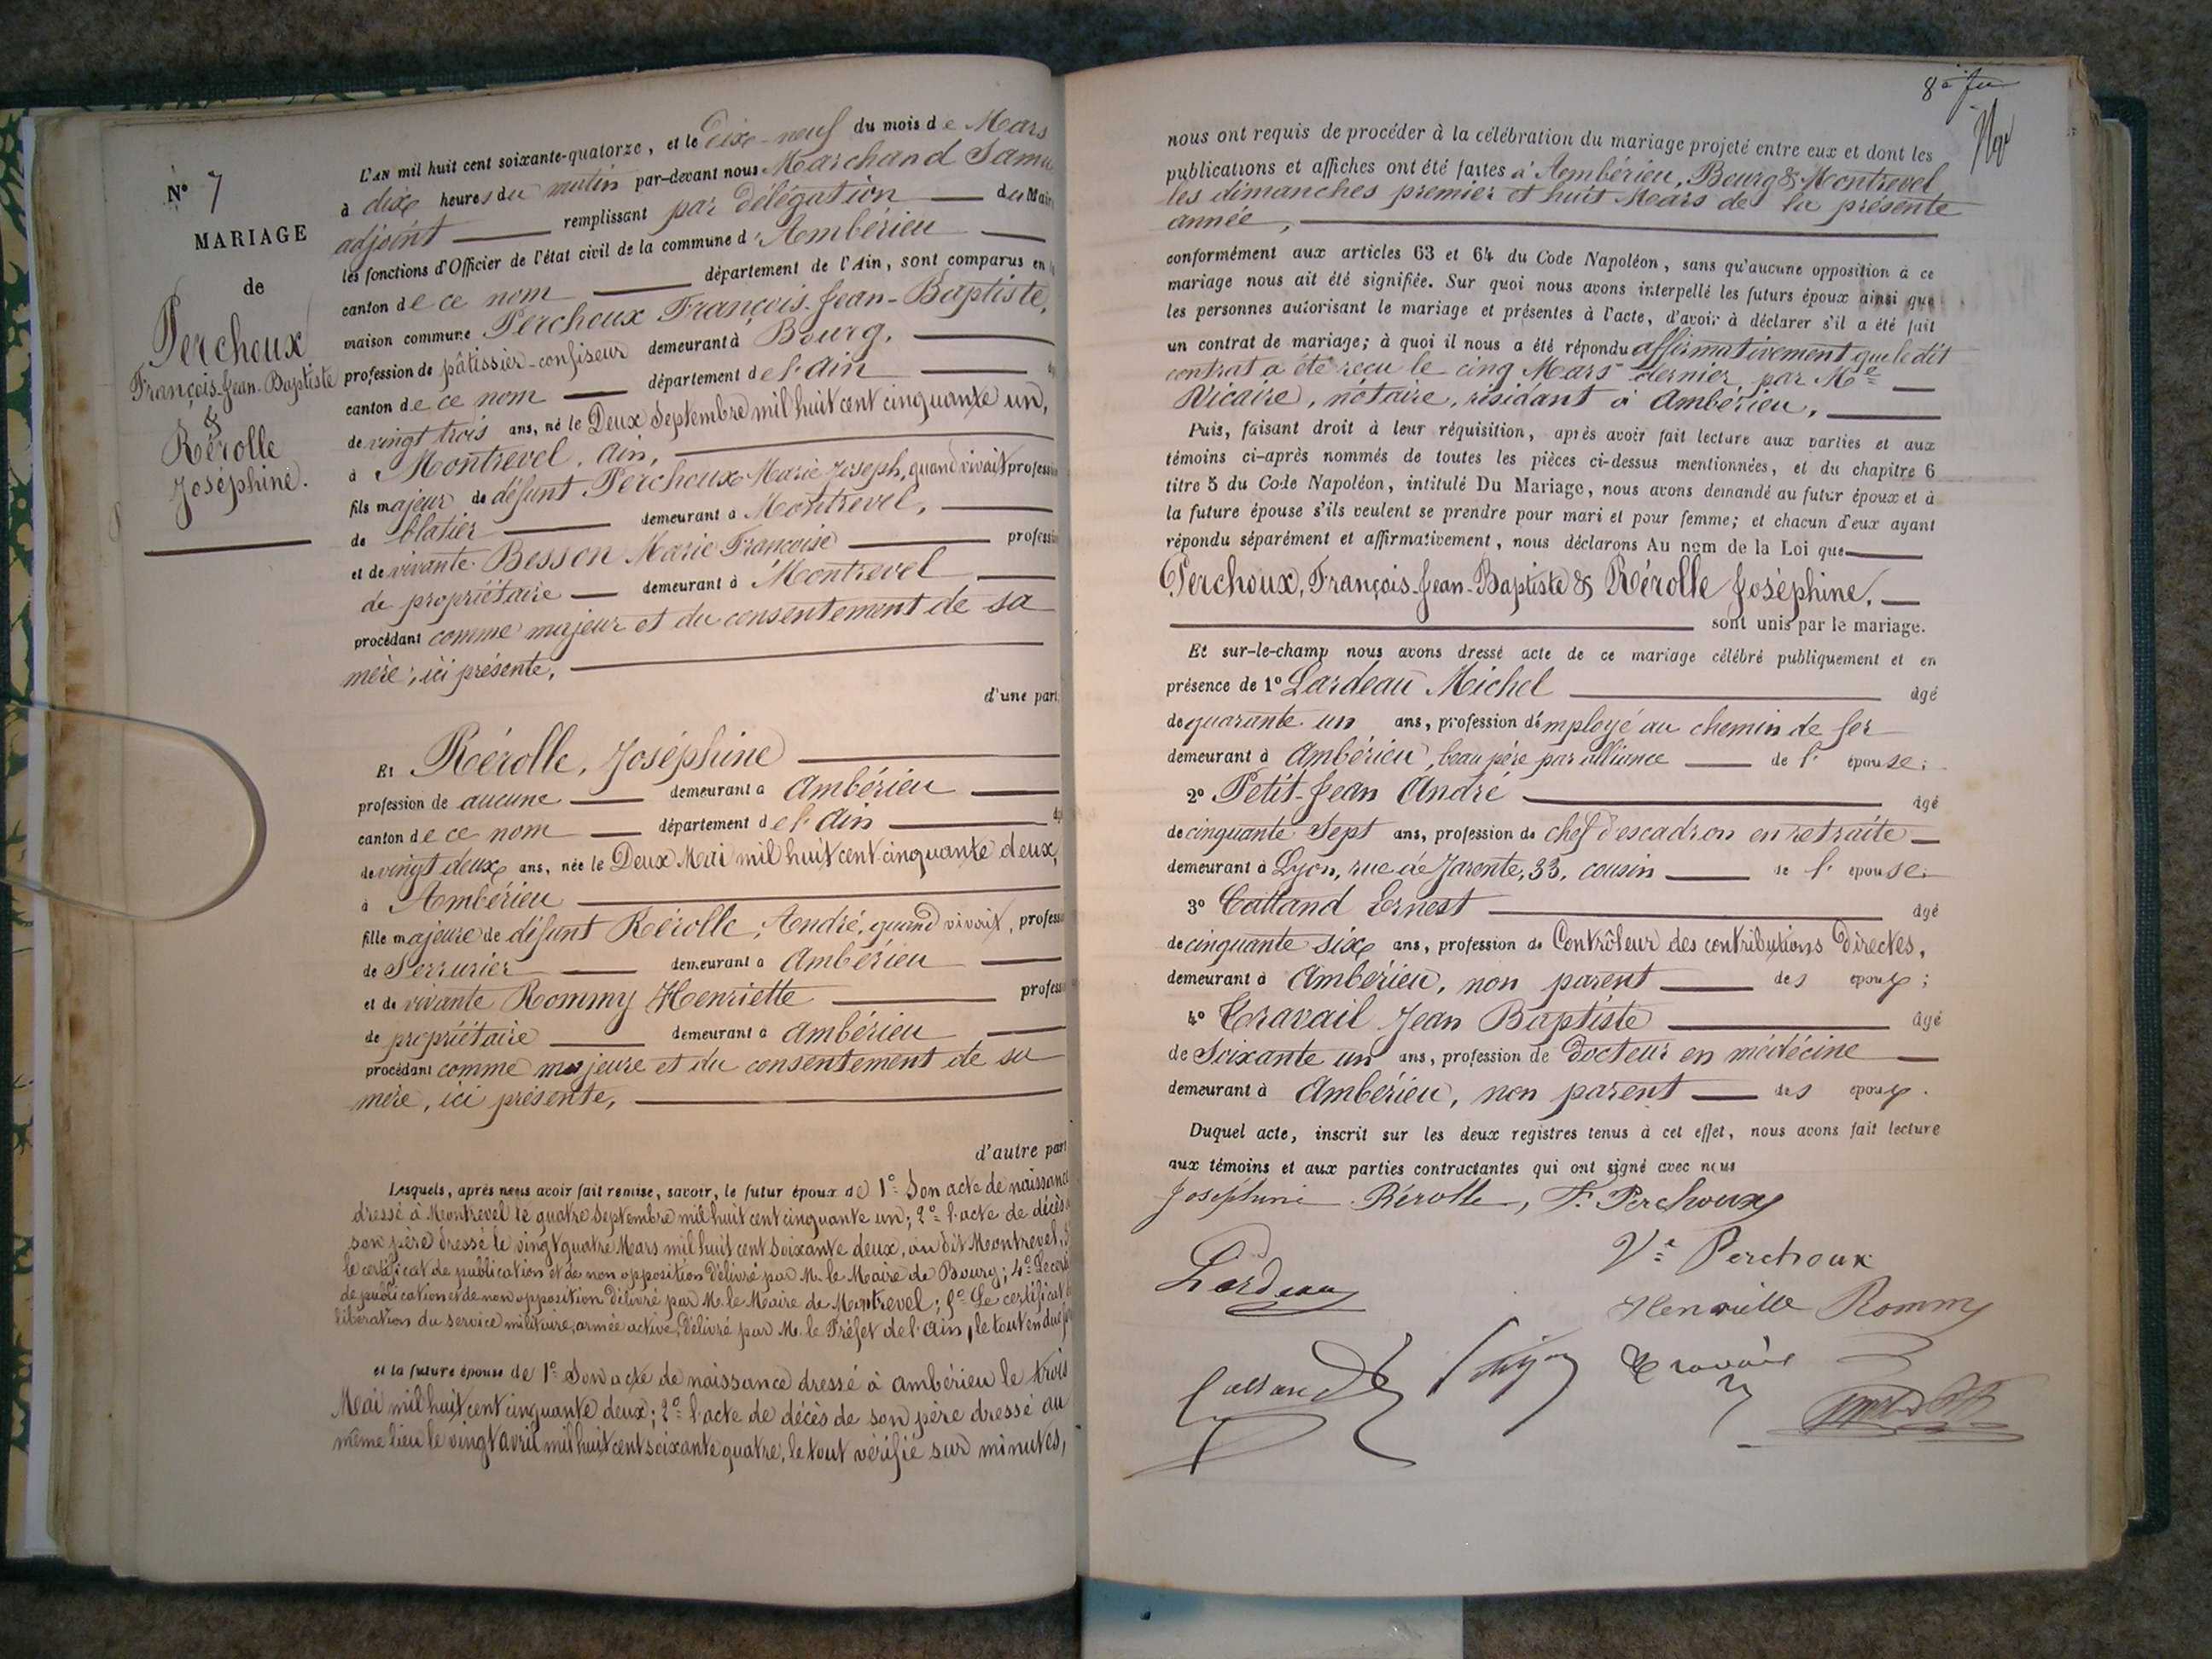 N° 7
MARIAGE
de
Perchoux
François-Jean-Baptiste
&
Rérolle
Joséphine.
L'AN mil huit cent soixante-quatorze, et le dix-neuf du mois de Mars
à dix heures du matin par-devant nous Marchand Samu
adjoint remplissant par délégation du Maire
les fonctions d'Officier de l'état civil de la commune d'Ambérieu
canton de ce nom département de l'Ain, sont comparus en la
maison commune Perchoux François-Jean-Baptiste,
profession de pâtissier-confiseur demeurant à Bourg,
canton de ce nom département de l'Ain
de vingt trois ans, né le Deux Septembre mil huit cent cinquante un,
à Montrevel, Ain,
fils majeur de défunt Perchoux Marie Joseph, quand vivait profession
de blatier demeurant à Montrevel,
et de vivante Besson Marie Françoise profession
de propriétaire demeurant à Montrevel
procédant comme majeur et du consentement de sa
mère, ici présente,
d'une part
Et Rérolle, Joséphine
profession de aucune demeurant à Ambérieu
canton de ce nom département de l'Ain
de vingt deux ans, née le Deux Mai mil huit cent cinquante deux,
à Ambérieu
fille majeure de défunt Rérolle, André, quand vivait, profess
de Serrurier demeurant à Ambérieu
et de vivante Rommy Henriette profess
de propriétaire demeurant à Ambérieu
procédant comme majeure et du consentement de sa
mère, ici présente,
d'autre part
Lesquels, après nous avoir fait remise, savoir, le futur époux de 1° Son acte de naissance
dressé à Montrevel le quatre Septembre mil huit cent cinquante un; 2° l'acte de décès
son père dressé le vingt quatre Mars mil huit cent soixante deux, au dit Montrevel,
le certificat de publication et de non opposition délivré par M. le Maire de Bourg; 4° Le certi
de publication et de non opposition délivré par M. le Maire de Montrevel; 5° Le certificat
libération du service militaire, armée active, délivré par M. le Préfet de l'Ain, le tout en due
et la future épouse de 1° Son acte de naissance dressé à Ambérieu le trois
Mai mil huit cent cinquante deux; 2° l'acte de décès de son père dressé au
même lieu le vingt avril mil huit cent soixante quatre, le tout vérifié sur minutes,
nous ont requis de procéder à la célébration du mariage projeté entre eux et dont les
publications et affiches ont été faites à Ambérieu, Bourg & Montrevel
les dimanches premier et huit Mars de la présente
année,
conformément aux articles 63 et 64 du Code Napoléon, sans qu'aucune opposition à ce
mariage nous ait été signifiée. Sur quoi nous avons interpellé les futurs époux ainsi que
les personnes autorisant le mariage et présentes à l'acte, d'avoir à déclarer s'il a été fait
un contrat de mariage; à quoi il nous a été répondu affirmativement que le dit
contrat a été reçu le cinq Mars dernier, par Me
Vicaire, notaire, résidant à Ambérieu,
Puis, faisant droit à leur réquisition, après avoir fait lecture aux parties et aux
témoins ci-après nommés de toutes les pièces ci-dessus mentionnées, et du chapitre 6
titre 5 du Code Napoléon, intitulé Du Mariage, nous avons demandé au futur époux et à
la future épouse s'ils veulent se prendre pour mari et pour femme; et chacun d'eux ayant
répondu séparément et affirmativement, nous déclarons Au nom de la Loi que
Perchoux, François-Jean-Baptiste & Rérolle Joséphine,
sont unis par le mariage.
Et sur-le-champ nous avons dressé acte de ce mariage célébré publiquement et en
présence de 1° Lardeau Michel âgé
de quarante un ans, profession d'employé au chemin de fer
demeurant à Ambérieu, beau père par alliance de l'épouse;
2° Petit-Jean André âgé
de cinquante Sept ans, profession de chef d'escadron en retraite
demeurant à Lyon, rue de Jarente, 33, cousin de l'épouse;
3° Calland Ernest âgé
de cinquante six ans, profession de Contrôleur des contributions Directes,
demeurant à Ambérieu, non parent des époux;
4° Travail Jean Baptiste âgé
de Soixante un ans, profession de Docteur en médécine
demeurant à Ambérieu, non parent des époux.
Duquel acte, inscrit sur les deux registres tenus à cet effet, nous avons fait lecture
aux témoins et aux parties contractantes qui ont signé avec nous
Joséphine Rérolle, F. Perchoux
Ve Perchoux
Lardeau
Henriette Rommy
Calland Travail